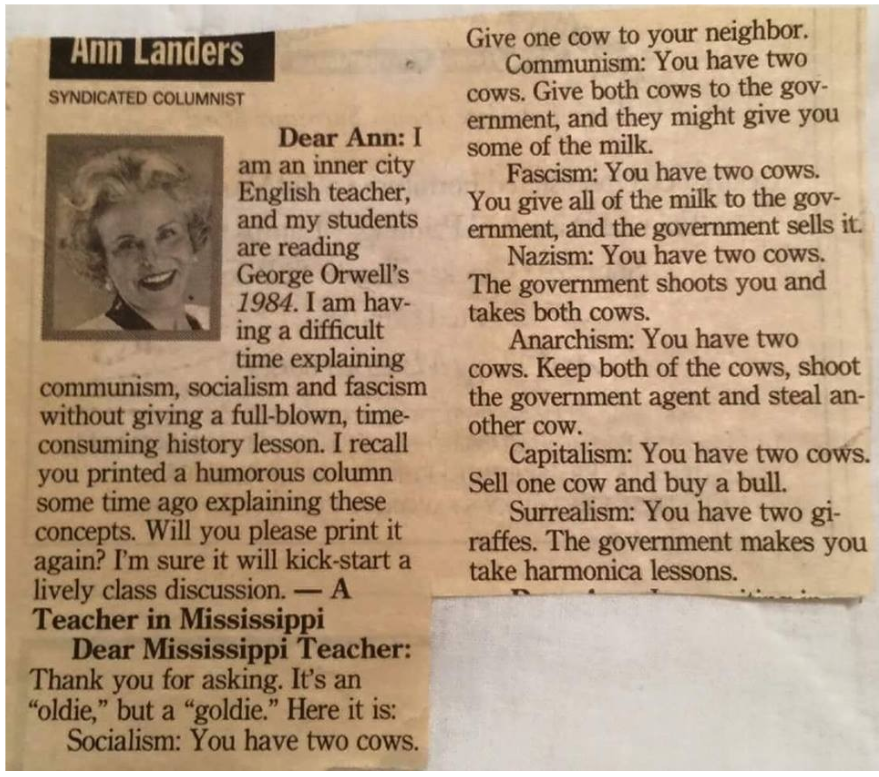 Ann Landers
SYNDICATED COLUMNIST
Dear Ann: I
am an inner city
English teacher,
and my students
are reading
George Orwell's
1984. I am hav-
ing a difficult
time explaining
communism, socialism and fascism
without giving a full-blown, time-
consuming history lesson. I recall
you printed a humorous column
some time ago explaining these
concepts. Will you please print it
again? I'm sure it will kick-start a
lively class discussion. — A
Teacher in Mississippi
Dear Mississippi Teacher:
Thank you for asking. It's an
“oldie,” but a “goldie.” Here it is:
Socialism: You have two cows.
Give one cow to your neighbor.
Communism: You have two
cows. Give both cows to the gov-
ernment, and they might give you
some of the milk.
Fascism: You have two cows.
You give all of the milk to the gov-
ernment, and the government sells it.
Nazism: You have two cows.
The government shoots you and
takes both cows.
Anarchism: You have two
cows. Keep both of the cows, shoot
the government agent and steal an-
other cow.
Capitalism: You have two cows.
Sell one cow and buy a bull.
Surrealism: You have two gi-
raffes. The government makes you
take harmonica lessons.